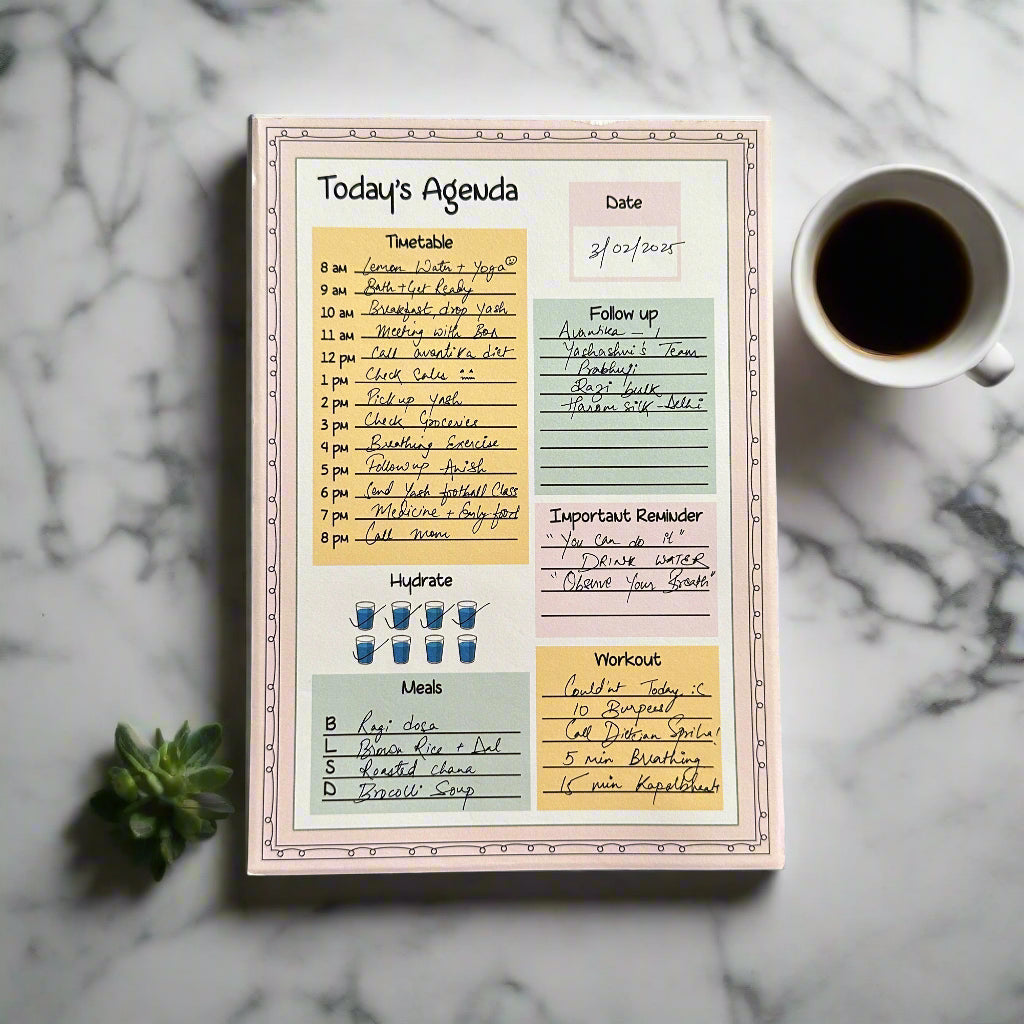 Today's Agenda
Date
3/02/2025
Timetable
8 AM Lemon Water + Yoga
9 AM Bath + Get Ready
10 AM Breakfast, drop Yash
11 AM Meeting with
12 PM Call avantika diet
1 PM Check Sales
2 PM Pick up Yash
3 PM Check Groceries
4 PM Breathing Exercise
5 PM Followup Anish
6 PM Send Yash football Class
7 PM Medicine + Early food
8 PM Call mom
Hydrate
Meals
B Ragi dosa
L Brown Rice + Dal
S Roasted chana
D Brocolli Soup
Follow up
Avantika - 1
Yashashvi's Team
Prabhuji
Ragi bulk
silk - Delhi
Important Reminder
"You can do it"
DRINK WATER
"Observe Your Breath"
Workout
Could'nt Today :C
10 Burpees
Call Dietcian
5 min Breathing
15 min Kapalbhati